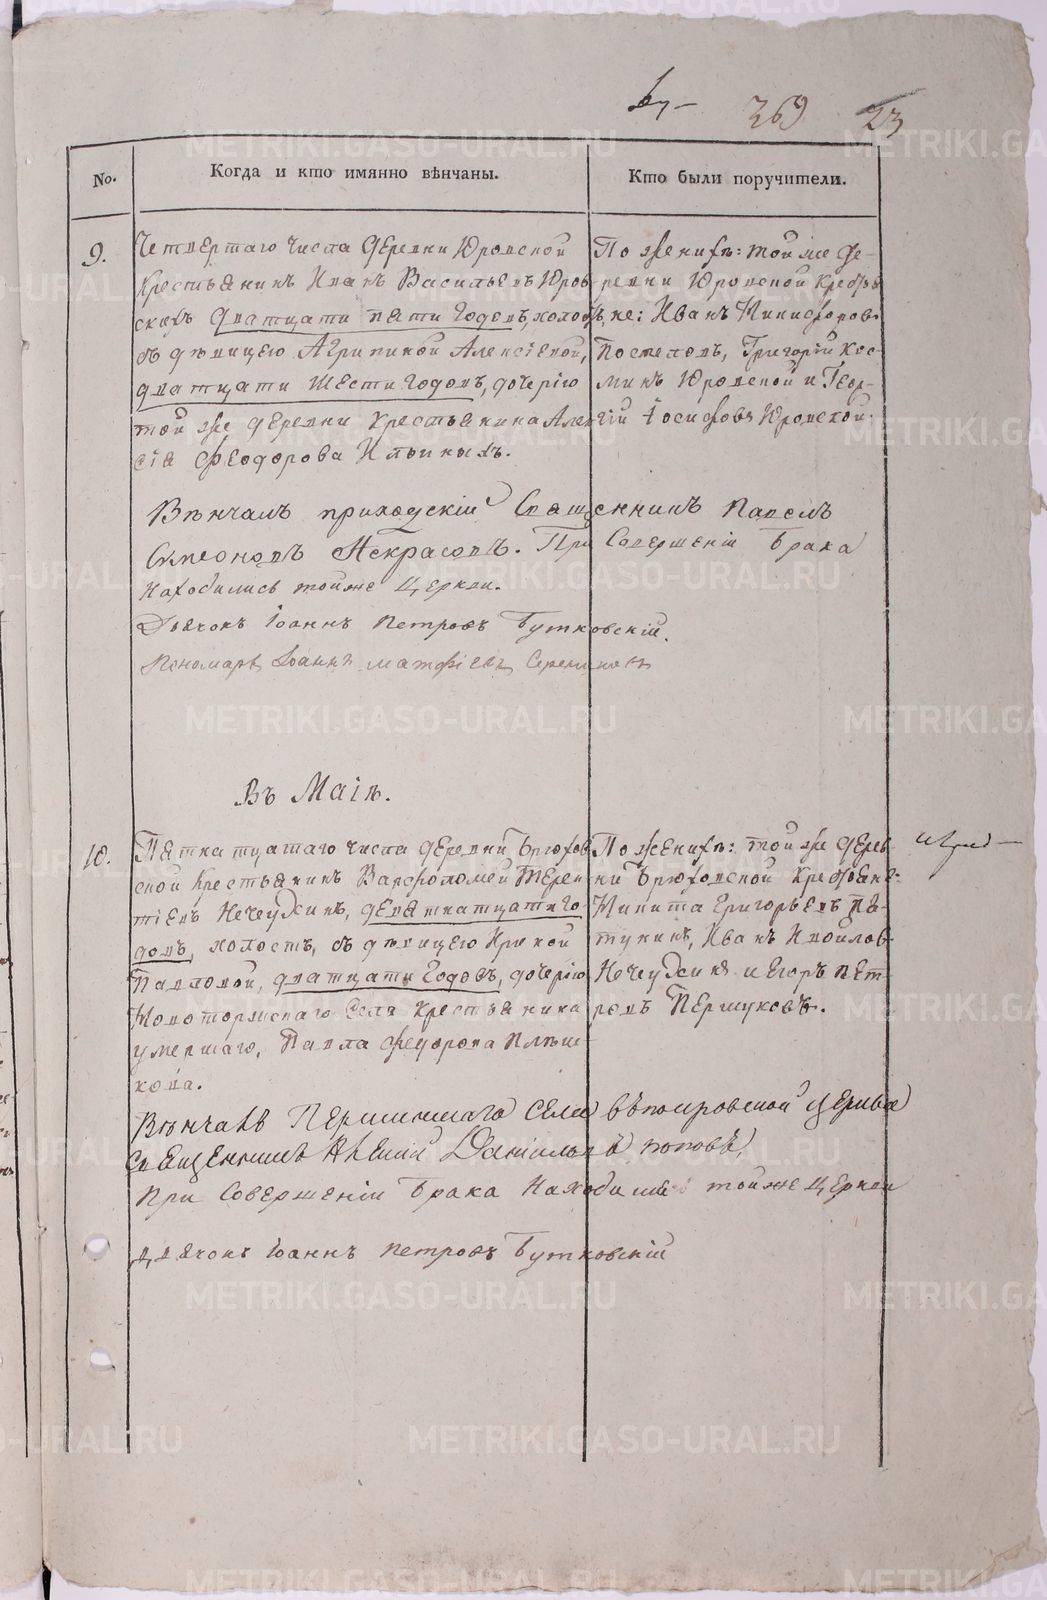 369 23
No. Когда и кто имянно вѣнчаны. Кто были поручители.
9. Четвертаго числа деревни Юровской
крестьянинъ Иванъ Васильевъ Юров-
скихъ дватцати пяти годовъ, холостъ,
съ дѣвицею Агрипиной Алексіевой,
дватцати шести годовъ, дочерію
той же деревни крестьянина Алек-
сія Феодорова Ильиныхъ.
По женихѣ: той же де-
ревни Юровской крестья-
не: Иванъ Никифоровъ
Постеловъ, Григорій Кос-
минъ Юровской и Геор-
гій Іосифовъ Юровской.
Вѣнчалъ приходскій Священникъ Павелъ
Симеоновъ Некрасовъ. При Совершеніи Брака
находились тойже Церкви.
Дьячокъ Іоаннъ Петровъ Бутковскій.
Пономарь Іоаннъ Матфіевъ
Въ Маіѣ.
10. Пятнатцатаго числа деревни Брюхов-
ской крестьянинъ Варфоломей Терен-
тіевъ Нечеухинъ, девятнатцати го-
довъ, холостъ, съ дѣвицею Ириной
Павловой, дватцати годовъ, дочерію
Новоторжскаго Села крестьянина
умершаго, Павла Федорова Плѣш-
кова.
По женихѣ: той же дерев-
ни Брюховской крестьяне:
Никита Григорьевъ Па-
тукинъ, Иванъ Ивойловъ
Нечеухинъ и Егоръ Пет-
ровъ Першуковъ.
Вѣнчавъ Села Церкви
Священникъ Даніиловъ Поповъ,
При Совершеніи Брака находились тойже Церкви
Дьячокъ Іоаннъ Петровъ Бутковскій
METRIKI.GASO-URAL.RU